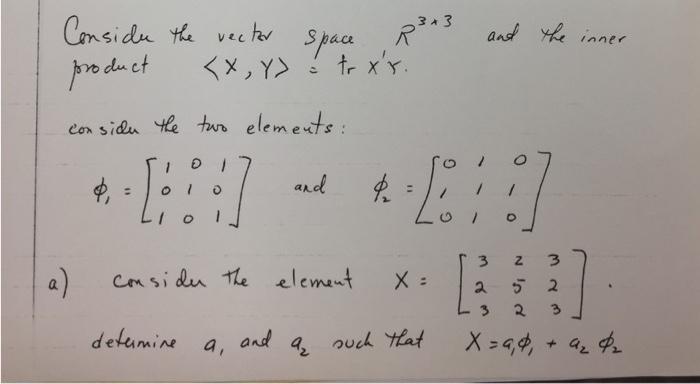 Consider the vector space R^{3×3} and the inner
product <X, Y> = tr X'Y.
consider the two elements:
ϕ₁ = [1 0 1; 0 1 0; 1 0 1] and ϕ₂ = [0 1 0; 1 1 1; 0 1 0]
a) consider the element X = [3 2 3; 2 5 2; 3 2 3].
determine a₁ and a₂ such that X = a₁ϕ₁ + a₂ϕ₂